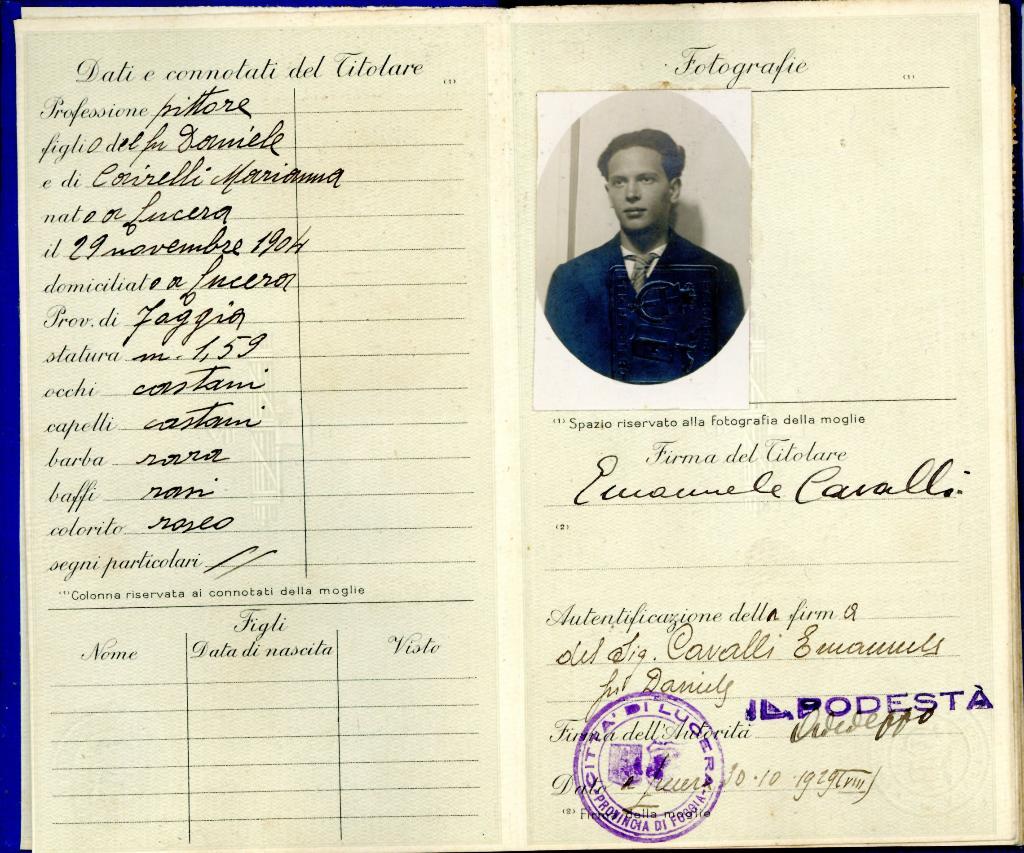 Dati e connotati del Titolare (1)
Professione pittore
figlio del fu Daniele
e di Cairelli Marianna
nato a Lucera
il 29 novembre 1904
domiciliato a Lucera
Prov. di Foggia
statura m. 1,59
occhi castani
capelli castani
barba rara
baffi rari
colorito roseo
segni particolari //
(1) Colonna riservata ai connotati della moglie
Figli
Nome Data di nascita Visto
Fotografie (1)
(1) Spazio riservato alla fotografia della moglie
Firma del Titolare
Emanuele Cavalli
(2)
Autentificazione della firma
del Sig. Cavalli Emanuele
fu Daniele
IL PODESTÀ
Firma dell'Autorità
Data Lucera 30-10-1929 (VIII)
(2) Firma della moglie
CITTA' DI LUCERA
PROVINCIA DI FOGGIA